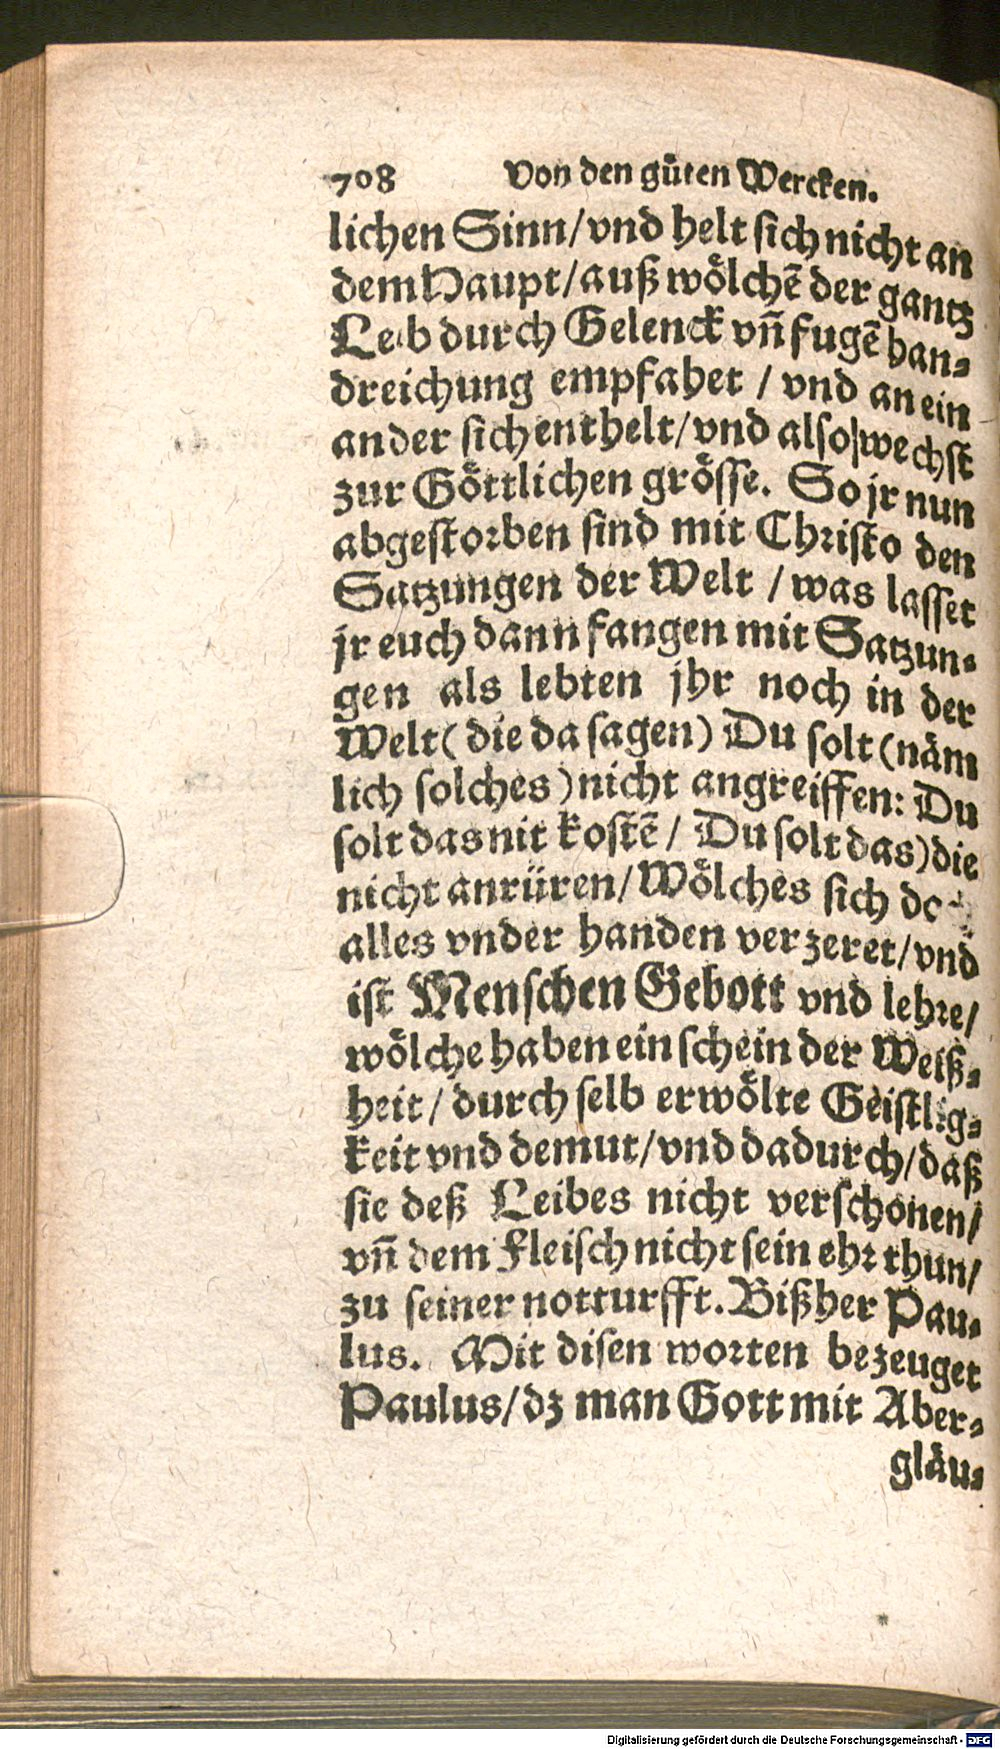 708 Von den gůten Wercken.
lichen Sinn/vnd helt sich nicht an
dem Haupt/auß wôlchẽ der gantz
Leib durch Gelenck vñ fugẽ han-
dreichung empfahet / vnd an ein
ander sich enthelt/vnd also wechst
zur Göttlichen grösse. So jr nun
abgestorben sind mit Christo den
Satzungen der Welt / was lasset
jr euch dann fangen mit Satzun-
gen als lebten jhr noch in der
Welt (die da sagen) Du solt (näm
lich solches) nicht angreiffen: Du
solt das nit kostẽ / Du solt das) die
nicht anrüren/Wölches sich doch
alles vnder handen verzeret/vnd
ist Menschen Gebott vnd lehre/
wölche haben ein schein der Weiß-
heit/ durch selb erwölte Geistlig-
keit vnd demut/vnd dadurch/daß
sie deß Leibes nicht verschonen/
vñ dem Fleisch nicht sein ehr thun/
zu seiner notturfft. Bißher Pau-
lus. Mit disen worten bezeuget
Paulus/dz man Gott mit Aber-
gläu-
Digitalisierung gefördert durch die Deutsche Forschungsgemeinschaft - DFG